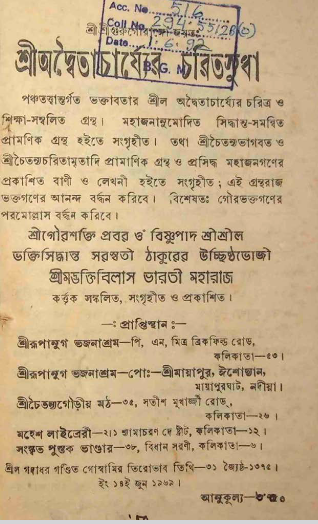 Acc. No. 516
শ্রীশ্রীগুরুগৌরাঙ্গৌ জয়তঃ
Coll No.
Date
B. G. M.
শ্রীঅদ্বৈতাচার্য্যের চরিতসুধা
পঞ্চতত্ত্বান্তর্গত ভক্তাবতার শ্রীল অদ্বৈতাচার্য্যের চরিত্র ও
শিক্ষা-সম্বলিত গ্রন্থ। মহাজনানুমোদিত সিদ্ধান্ত-সমন্বিত
প্রামাণিক গ্রন্থ হইতে সংগৃহীত। তথা শ্রীচৈতন্যভাগবত ও
শ্রীচৈতন্যচরিতামৃতাদি প্রামাণিক গ্রন্থ ও প্রসিদ্ধ মহাজনগণের
প্রকাশিত বাণী ও লেখনী হইতে সংগৃহীত ; এই গ্রন্থরাজ
ভক্তগণের আনন্দ বর্দ্ধন করিবে। বিশেষতঃ গৌরভক্তগণের
পরমোল্লাস বর্দ্ধন করিবে।
শ্রীগৌরশক্তি প্রবর ওঁ বিষ্ণুপাদ শ্রীশ্রীল
ভক্তিসিদ্ধান্ত সরস্বতী ঠাকুরের উচ্ছিষ্টভোজী
শ্রীমদ্ভক্তিবিলাস ভারতী মহারাজ
কর্ত্তৃক সঙ্কলিত, সংগৃহীত ও প্রকাশিত।
—ঃ প্রাপ্তিস্থান ঃ—
শ্রীরূপানুগ ভজনাশ্রম—পি, এন, মিত্র ব্রিকফিল্ড রোড,
কলিকাতা—৫৩।
শ্রীরূপানুগ ভজনাশ্রম—পোঃ—শ্রীমায়াপুর, ঈশোদ্যান,
মায়াপুরঘাট, নদীয়া।
শ্রীচৈতন্যগৌড়ীয় মঠ—৩৫, সতীশ মুখার্জ্জী রোড,
কলিকাতা—২৬।
মহেশ লাইব্রেরী—২।১ শ্যামাচরণ দে ষ্ট্রীট, কলিকাতা—১২।
সংস্কৃত পুস্তক ভাণ্ডার—৩৮, বিধান সরণী, কলিকাতা—৬।
শ্রীল গদাধর পণ্ডিত গোস্বামির তিরোভাব তিথি—৩১ জ্যৈষ্ঠ-১৩৭৫।
ইং ১৪ই জুন ১৯৬৯।
আনুকূল্য—